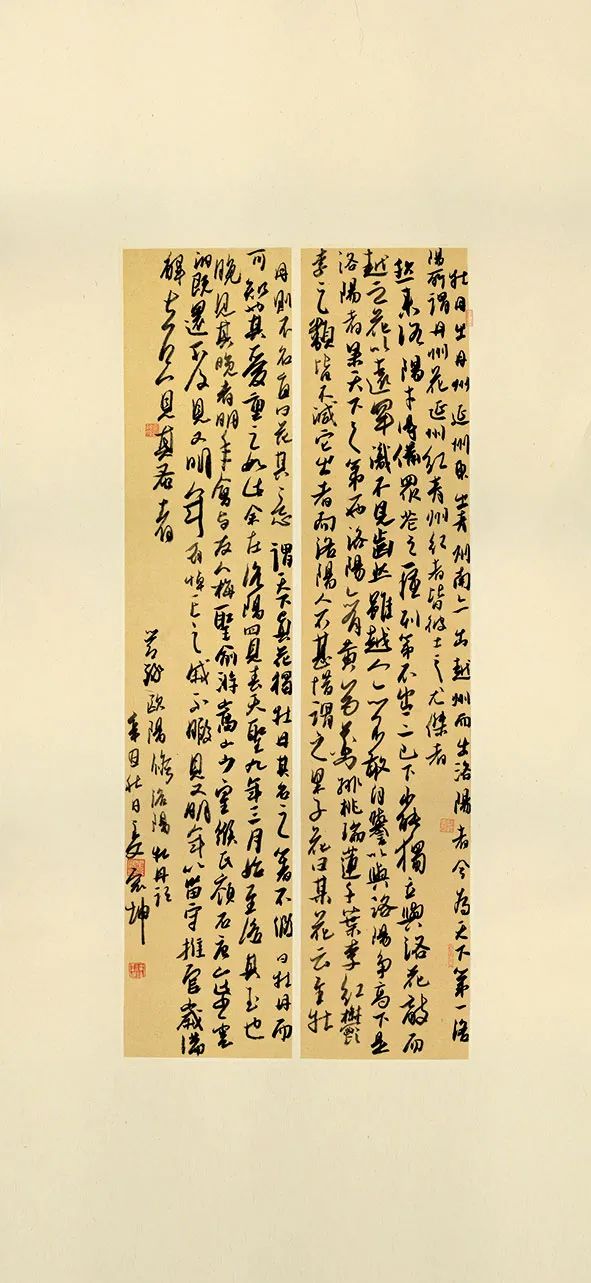 牡丹出丹州延州東出青州南亦出越州而出洛陽者今為天下第一洛
陽所謂丹州花延州紅青州紅者皆彼土之尤傑者
然來洛陽才得備眾花之種列第不出三已下不能獨立與洛花敵而
越之花以遠罕識不見齒然雖越人亦不敢自譽以與洛陽爭高下是
洛陽者果天下之第一也洛陽亦有黃芍藥緋桃瑞蓮千葉李紅郁李
李之類皆不減它出者而洛陽人不甚惜謂之果子花曰某花云至牡
丹則不名直曰花其意謂天下真花獨牡丹其名之著不假曰牡丹而
可知也其愛重之如此余在洛陽四見春天聖九年三月始至洛其至也
晚見其晚者明年會與友人梅聖俞游嵩山少室緱氏嶺石唐山紫雲
洞既還不及見又明年有悼亡之戚不暇見又明年以留守推官歲滿
解去只見其蚤者
歐陽修洛陽牡丹記
辛丑秋日
坤